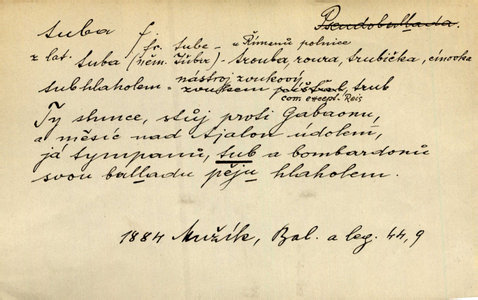 tuba f. Pseudoballada.
fr. tube - u Římanů polnice
z lat. tuba (něm. Tuba) - trouba, roura, trubička, cínovka
tub hlaholem - nástroj zvukový
zvukem trub
com. except. Reis
Ty slunce, stůj proti Gabaonu,
a měsíc nad Ajalon údolem,
já tympanů, tub a bombardonů
svou balladu pěju hlaholem.
1884 Mužík, Bal. a leg. 44, 9